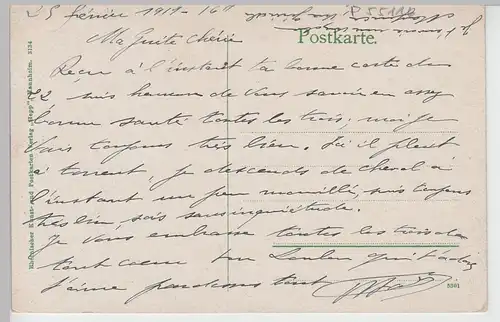 25 février 1919 - 16h
P55110
Postkarte.
Ma Guite chérie
Reçu à l'instant ta bonne carte du
22, suis heureux de vous savoir en assez
bonne santé toutes les trois, moi je
vais toujours très bien. Ici il pleut
à torrent, je descends de cheval à
l'instant un peu mouillé, suis toujours
très bien, sois sans inquiétude.
Je vous embrasse toutes les trois de
tout coeur ton Loulou qui t'adore
t'aime tout
Rheinischer Kunst- und Postkarten-Verlag „Hepp“, Mannheim. 2134
5501